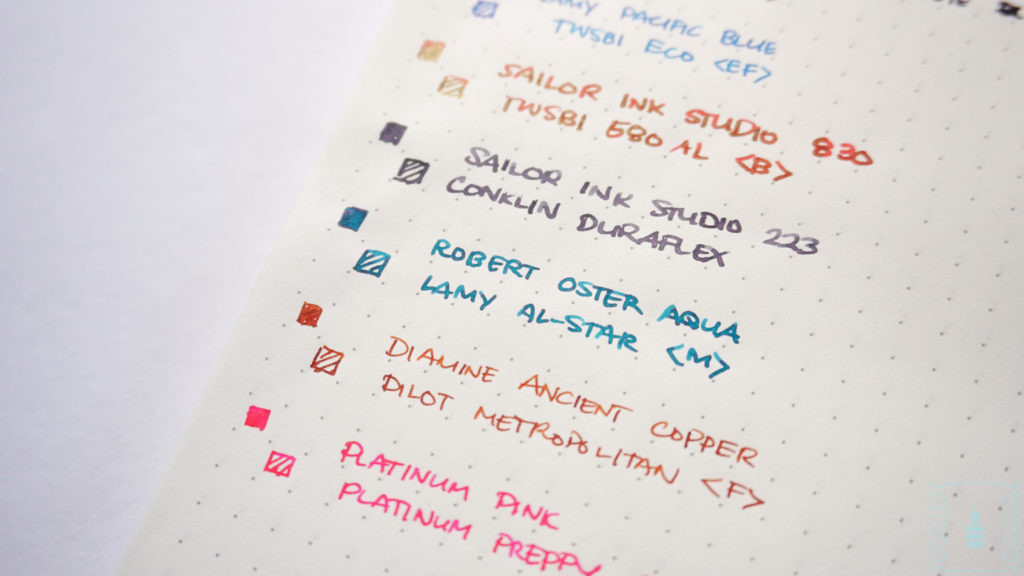 LAMY PACIFIC BLUE
TWSBI ECO <EF>
SAILOR INK STUDIO 830
TWSBI 580 AL <B>
SAILOR INK STUDIO 223
CONKLIN DURAFLEX
ROBERT OSTER AQUA
LAMY AL-STAR <M>
DIAMINE ANCIENT COPPER
PILOT METROPOLITAN <F>
PLATINUM PINK
PLATINUM PREPPY